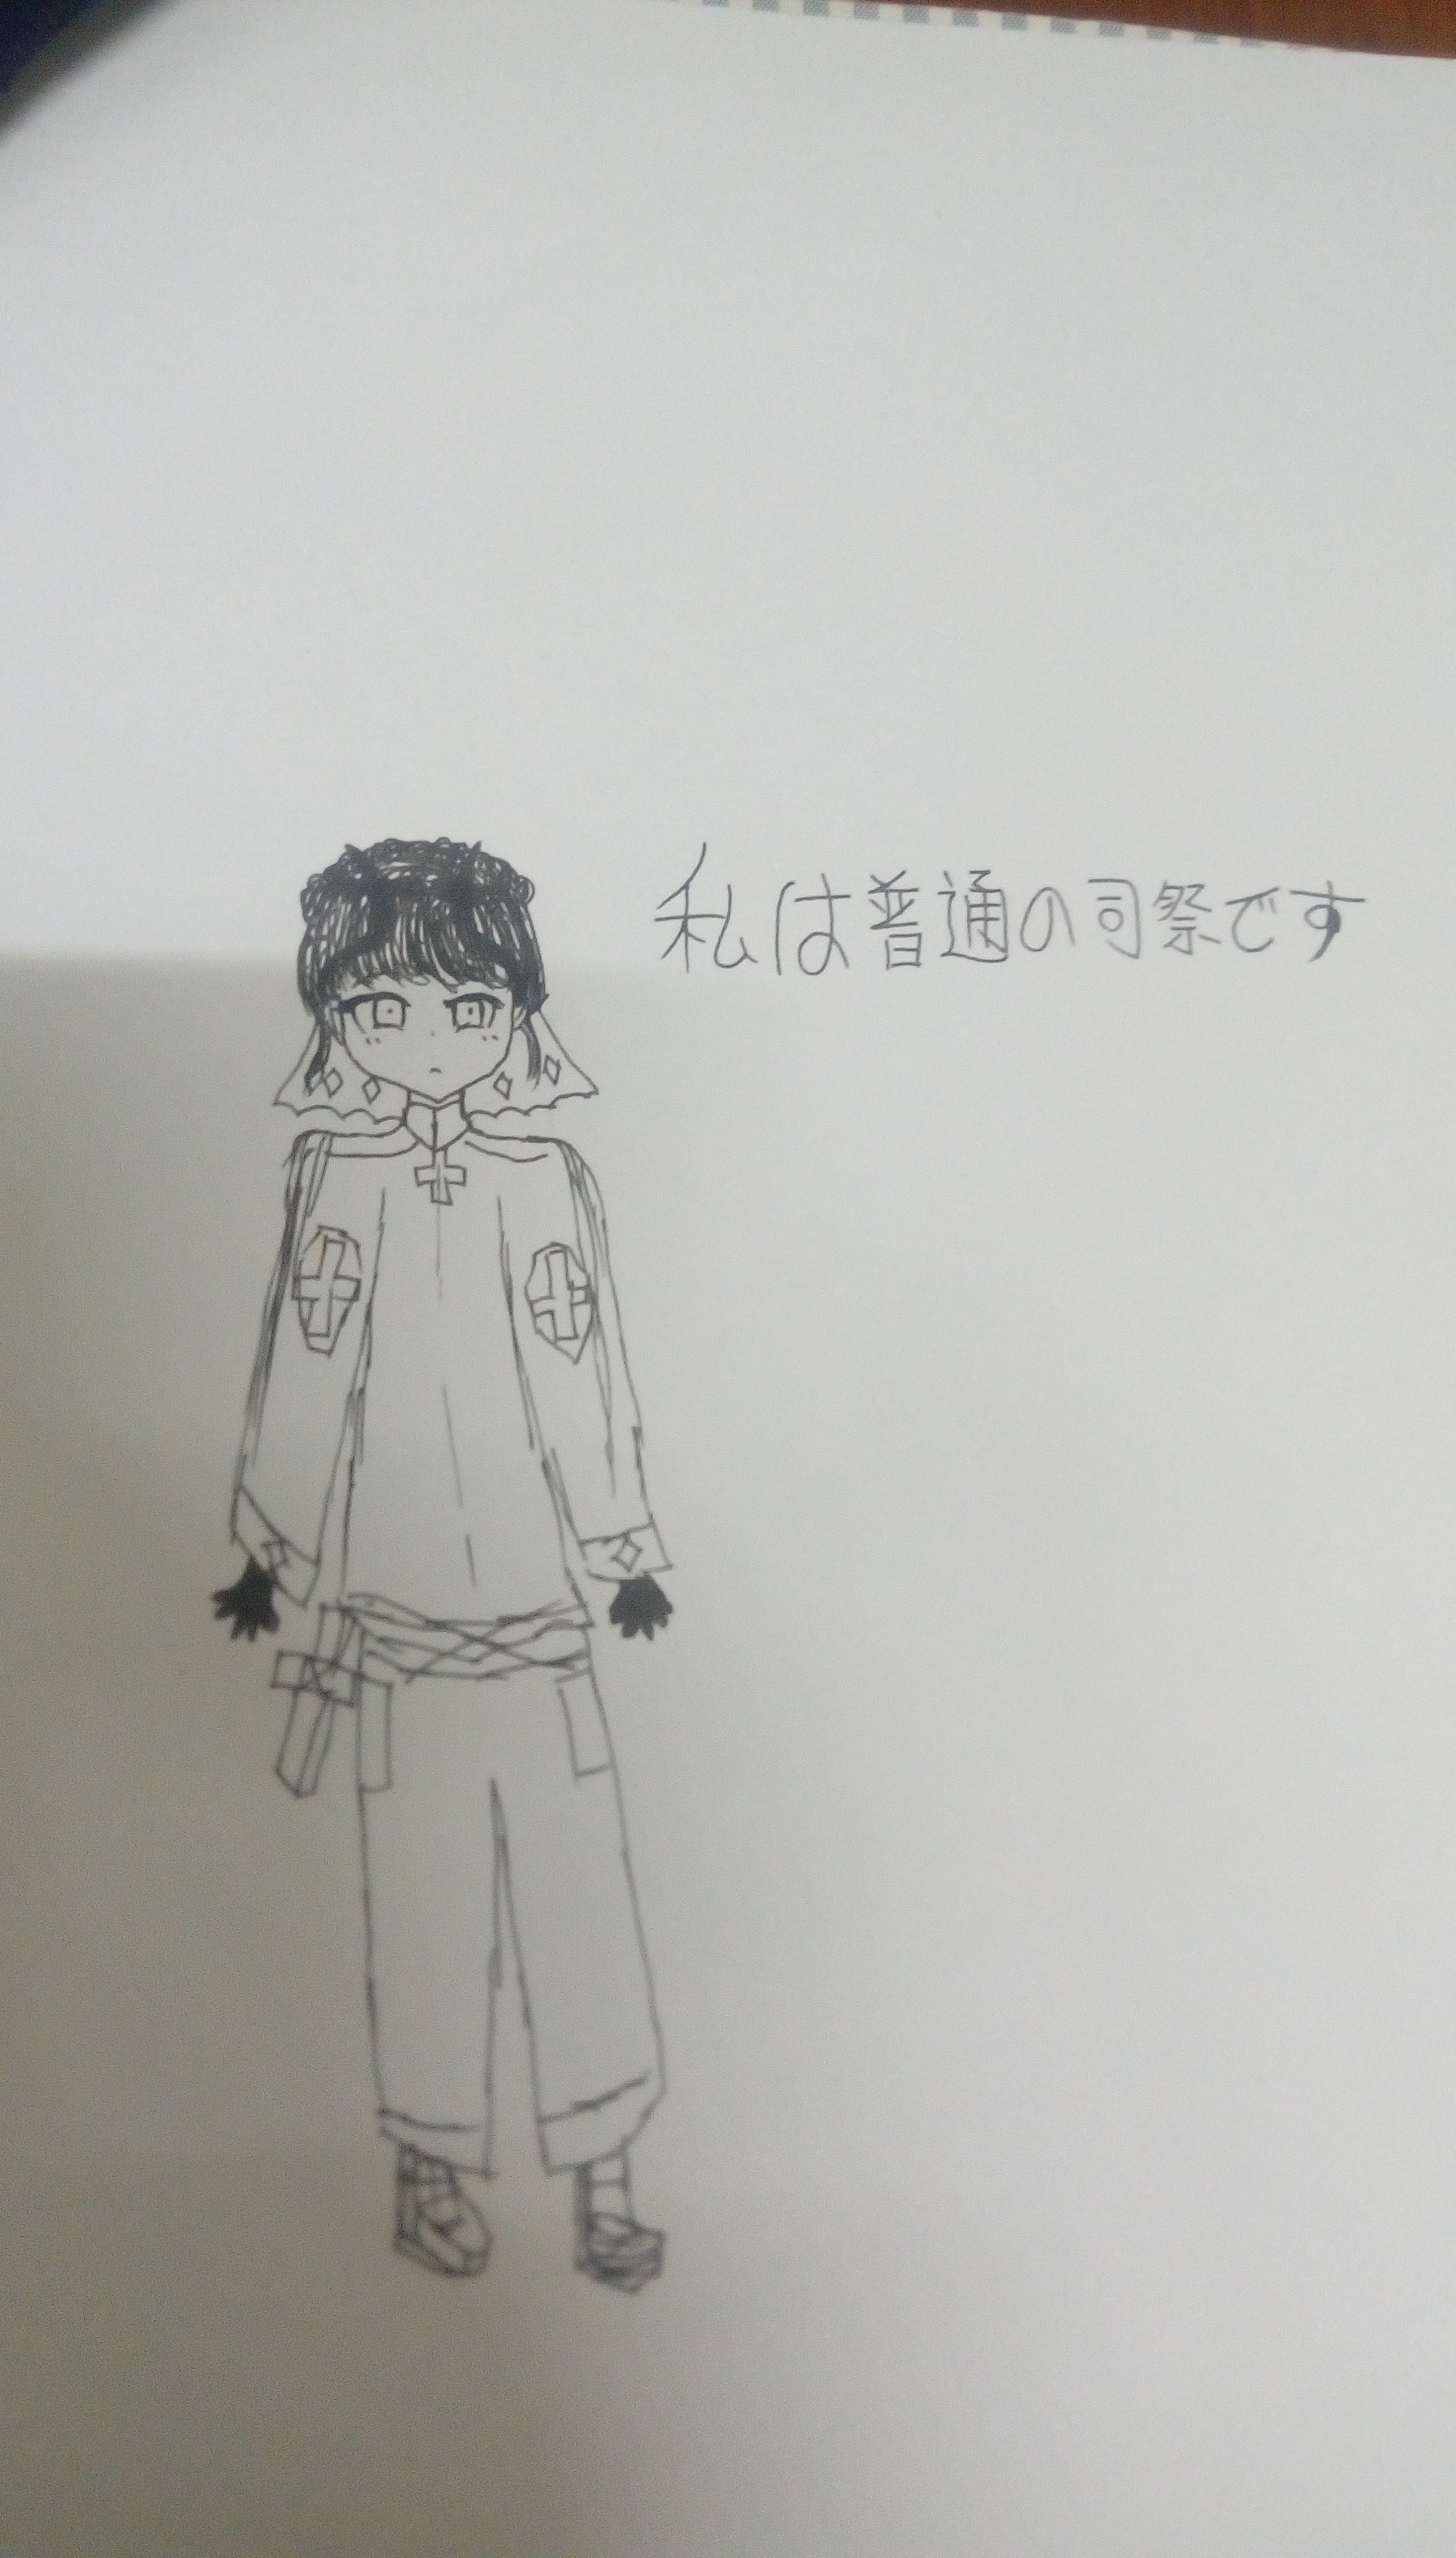 私は普通の司祭です